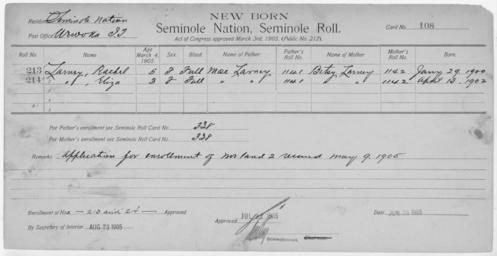 NEW BORN
Residence Seminole Nation
Seminole Nation, Seminole Roll.
Card No. 108
Post Office Wewoka I.T.
Act of Congress approved March 3rd, 1905, (Public No. 212).
Roll No. Age March 4, 1905. Sex. Blood. Name of Father. Father's Roll No. Name of Mother. Mother's Roll No. Born.
213 Larney, Rachel 5 F Full Mac Larney 1141 Betsy Larney 1142 Jany 29, 1900
214 " , Eliza 3 F Full " " 1141 " " 1142 April 13, 1902
For Father's enrollment see Seminole Roll Card No. 338
For Mother's enrollment see Seminole Roll Card No. 338
Remarks: Application for enrollment of Nos 1 and 2 received May 9, 1905
Enrollment of Nos and Approved
Approved
Date 1905
By Secretary of Interior AUG 23 1905
Commissioner